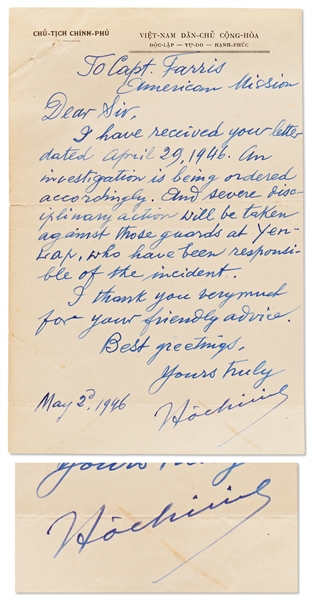 CHỦ-TỊCH CHÍNH-PHỦ
VIỆT-NAM DÂN-CHỦ CỘNG-HÒA
ĐỘC-LẬP — TỰ-DO — HẠNH-PHÚC
To Capt. Farris
American Mission
Dear Sir,
I have received your letter
dated April 29, 1946. An
investigation is being ordered
accordingly. And severe disc-
iplinary action will be taken
against those guards at Yen-
way, who have been responsi-
ble of the incident.
I thank you very much
for your friendly advice.
Best greetings.
Yours truly
May 2d, 1946
Hồchiminh
Yours truly
Hồchiminh